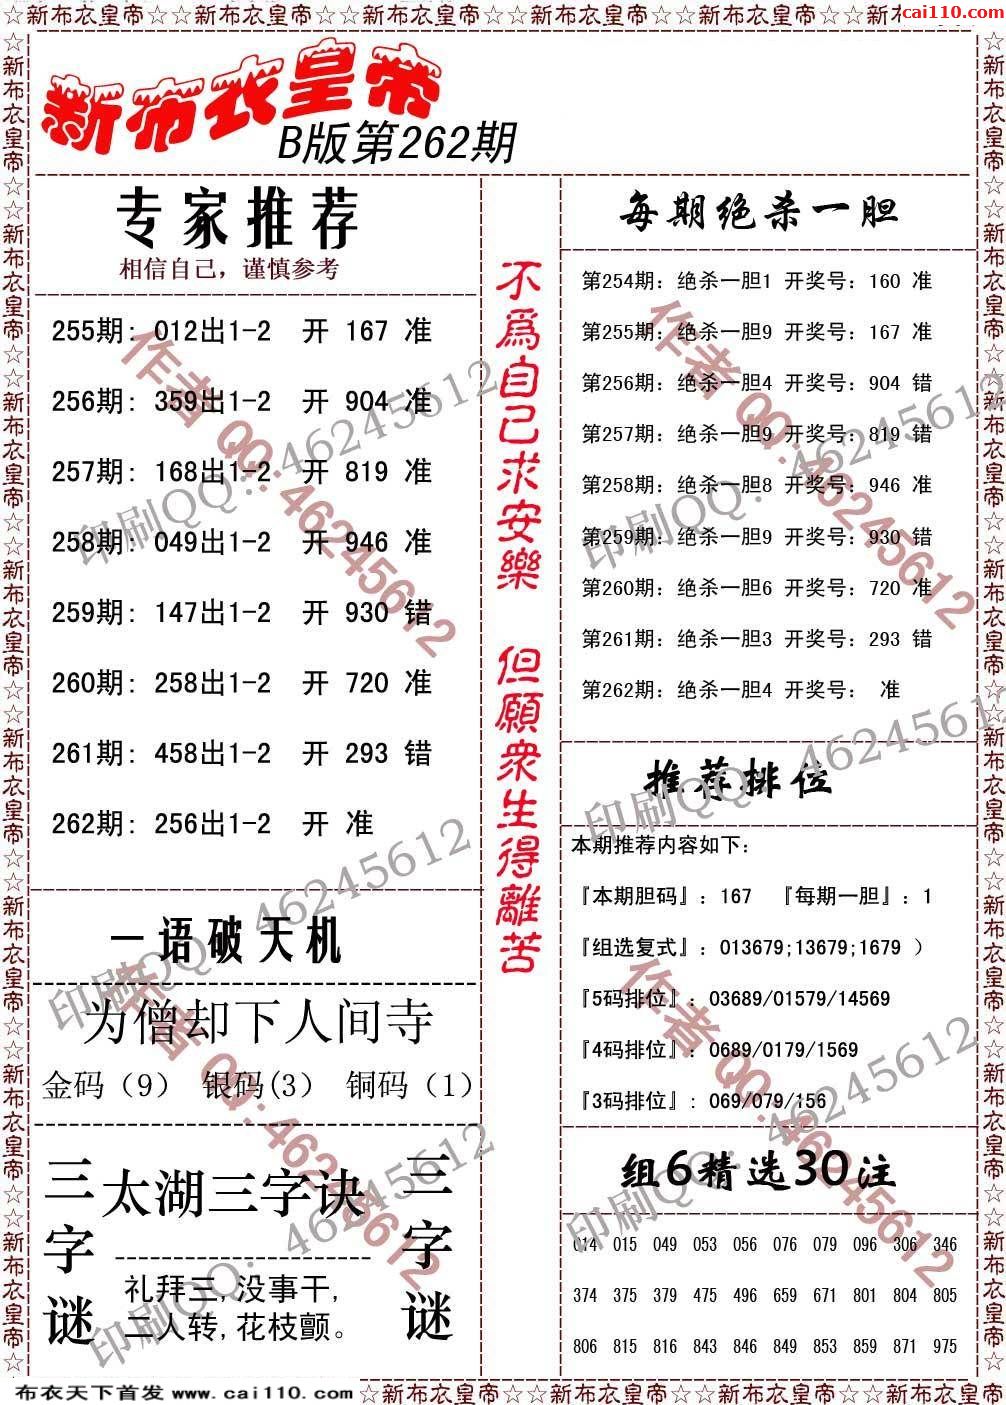 ☆新布衣皇帝☆新布衣皇帝☆新布衣皇帝☆新布衣皇帝☆新布衣皇帝☆新布衣皇帝☆新布衣皇帝☆新布
cai110.com
新布衣皇帝
B版第262期
专家推荐
相信自己，谨慎参考
255期: 012出1-2 开 167 准
256期: 359出1-2 开 904 准
257期: 168出1-2 开 819 准
258期: 049出1-2 开 946 准
259期: 147出1-2 开 930 错
260期: 258出1-2 开 720 准
261期: 458出1-2 开 293 错
262期: 256出1-2 开 准
一语破天机
为僧却下人间寺
金码（9） 银码(3） 铜码（1）
三字谜
太湖三字诀
礼拜三,没事干,
二人转,花枝颤。
三字谜
不為自己求安樂 但願衆生得離苦
每期绝杀一胆
第254期: 绝杀一胆1 开奖号: 160 准
第255期: 绝杀一胆9 开奖号: 167 准
第256期: 绝杀一胆4 开奖号: 904 错
第257期: 绝杀一胆9 开奖号: 819 错
第258期: 绝杀一胆8 开奖号: 946 准
第259期: 绝杀一胆9 开奖号: 930 错
第260期: 绝杀一胆6 开奖号: 720 准
第261期: 绝杀一胆3 开奖号: 293 错
第262期: 绝杀一胆4 开奖号: 准
推荐排位
本期推荐内容如下:
『本期胆码』: 167 『每期一胆』: 1
『组选复式』: 013679;13679;1679 ）
『5码排位』: 03689/01579/14569
『4码排位』: 0689/0179/1569
『3码排位』: 069/079/156
组6精选30注
014 015 049 053 056 076 079 096 306 346
374 375 379 475 496 659 671 801 804 805
806 815 816 843 846 849 853 859 871 975
作者 QQ:46245612
印刷QQ: 46245612
作者 QQ:46245612
印刷QQ: 46245612
印刷QQ: 46245612
印刷QQ: 46245612
作者 QQ:46245612
作者 QQ:46245612
印刷QQ: 46245612
印刷QQ: 46245612
布衣天下首发 www.cai110.com
☆新布衣皇帝☆☆新布衣皇帝☆☆新布衣皇帝☆☆新布衣皇帝☆